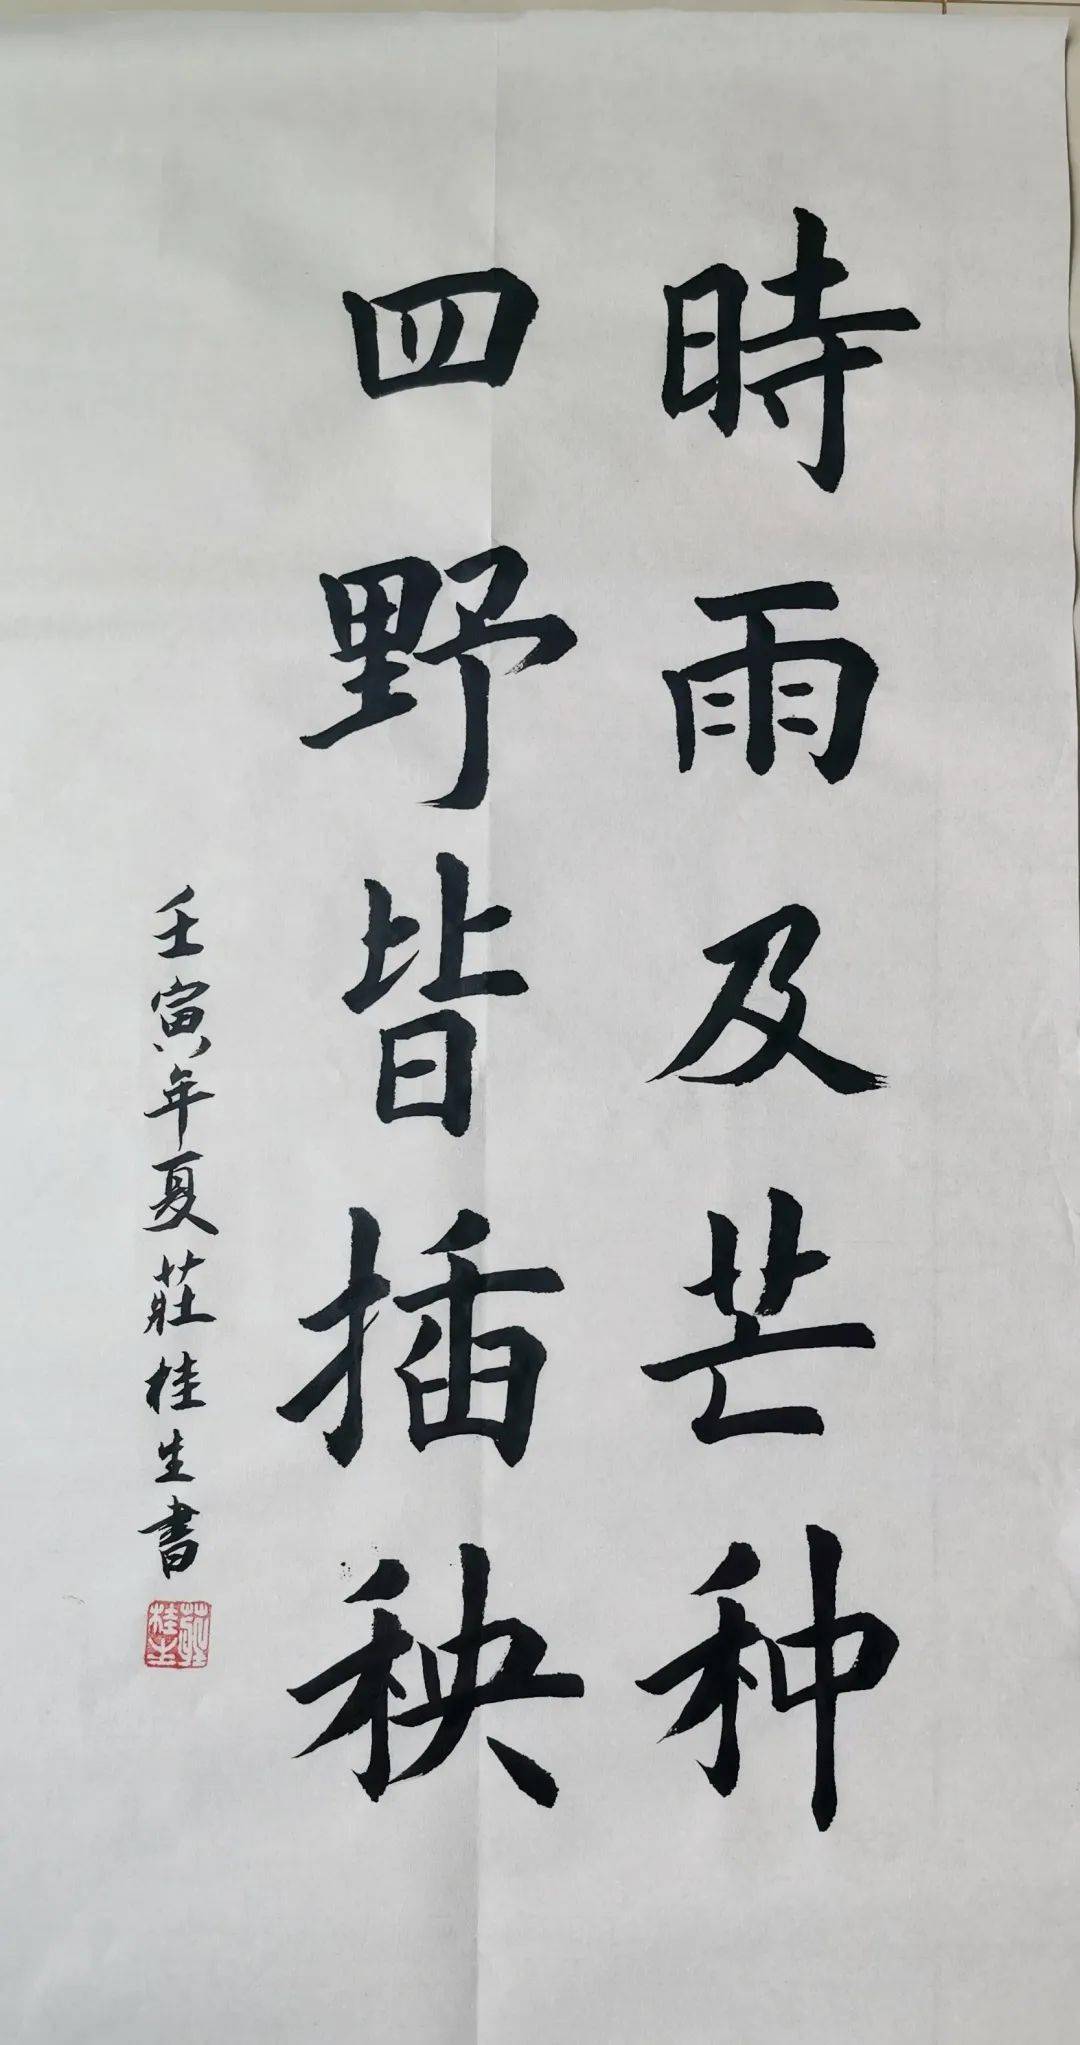 時雨及芒种
四野皆插秧
壬寅年夏莊桂生書
莊桂生